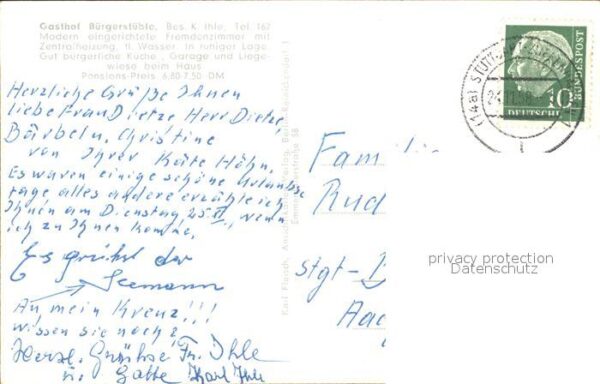 Gasthof Bürgerstüble, Bes. K. Ihle, Tel. 162
Modern eingerichtete Fremdenzimmer mit
Zentralheizung, fl. Wasser. In ruhiger Lage.
Gut bürgerliche Küche, Garage und Liege-
wiese beim Haus
Pensions-Preis 6,80-7,50 DM
Herzliche Grüße Ihnen
liebe Frau Dietze Herr Dietze,
Bärbeln, Christine
von Ihrer Käte Höhn.
Es waren einige schöne Urlaubs
tage alles andere erzähle ich
Ihnen am Dienstag 25. wenn
ich zu Ihnen komme,
Es grüßt der
Seemann
An mein Kreuz!!!
wissen sie noch?
Herzl. Grüße Fr. Ihle
u. Gatte Karl Ihle
Karl Flesch,
Familie
Rud
Stgt-
privacy protection
Datenschutz
(14a) STUTTGART
10
DEUTSCHE
BUNDESPOST